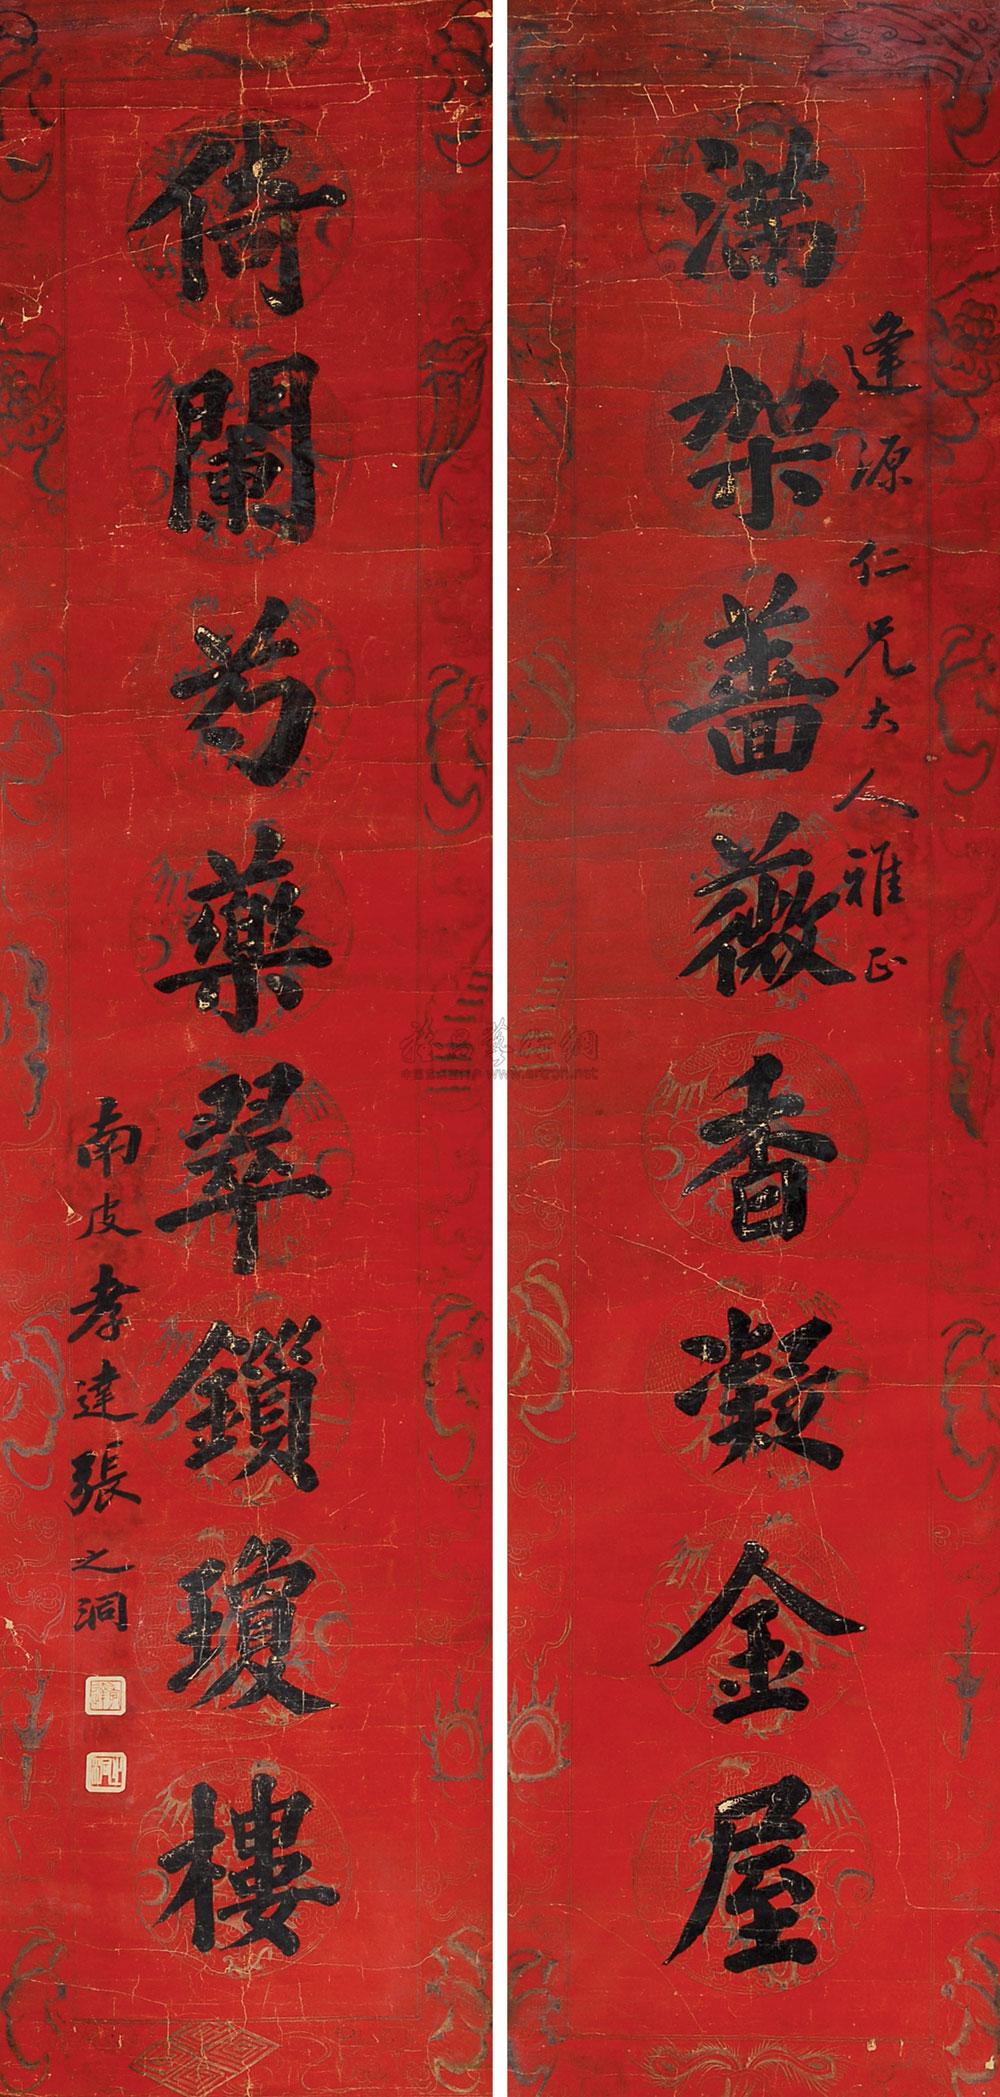 滿架薔薇香凝金屋
逢源仁兄大人雅正
倚闌芍藥翠鎖瓊樓
南皮孝達張之洞
www.artron.net